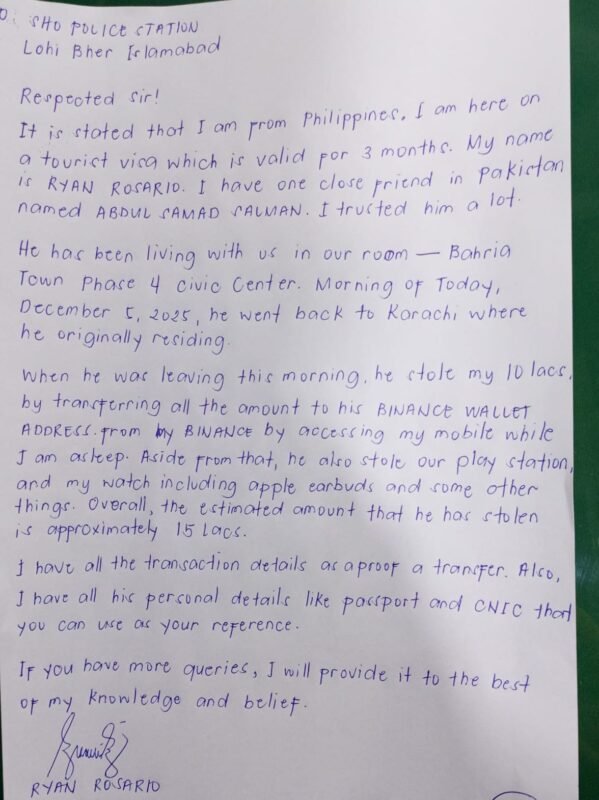 O: SHO POLICE STATION
Lohi Bher Islamabad
Respected Sir!
It is stated that I am from Philippines. I am here on
a tourist visa which is valid for 3 months. My name
is RYAN ROSARIO. I have one close friend in Pakistan
named ABDUL SAMAD SALMAN. I trusted him a lot.
He has been living with us in our room — Bahria
Town Phase 4 Civic Center. Morning of Today,
December 5, 2025, he went back to Karachi where
he originally residing.
When he was leaving this morning, he stole my 10 lacs,
by transferring all the amount to his BINANCE WALLET
ADDRESS. from my BINANCE by accessing my mobile while
I am asleep. Aside from that, he also stole our play station,
and my watch including apple earbuds and some other
things. Overall, the estimated amount that he has stolen
is approximately 15 Lacs.
I have all the transaction details as a proof a transfer. Also,
I have all his personal details like passport and CNIC that
you can use as your reference.
If you have more queries, I will provide it to the best
of my knowledge and belief.
RYAN ROSARIO